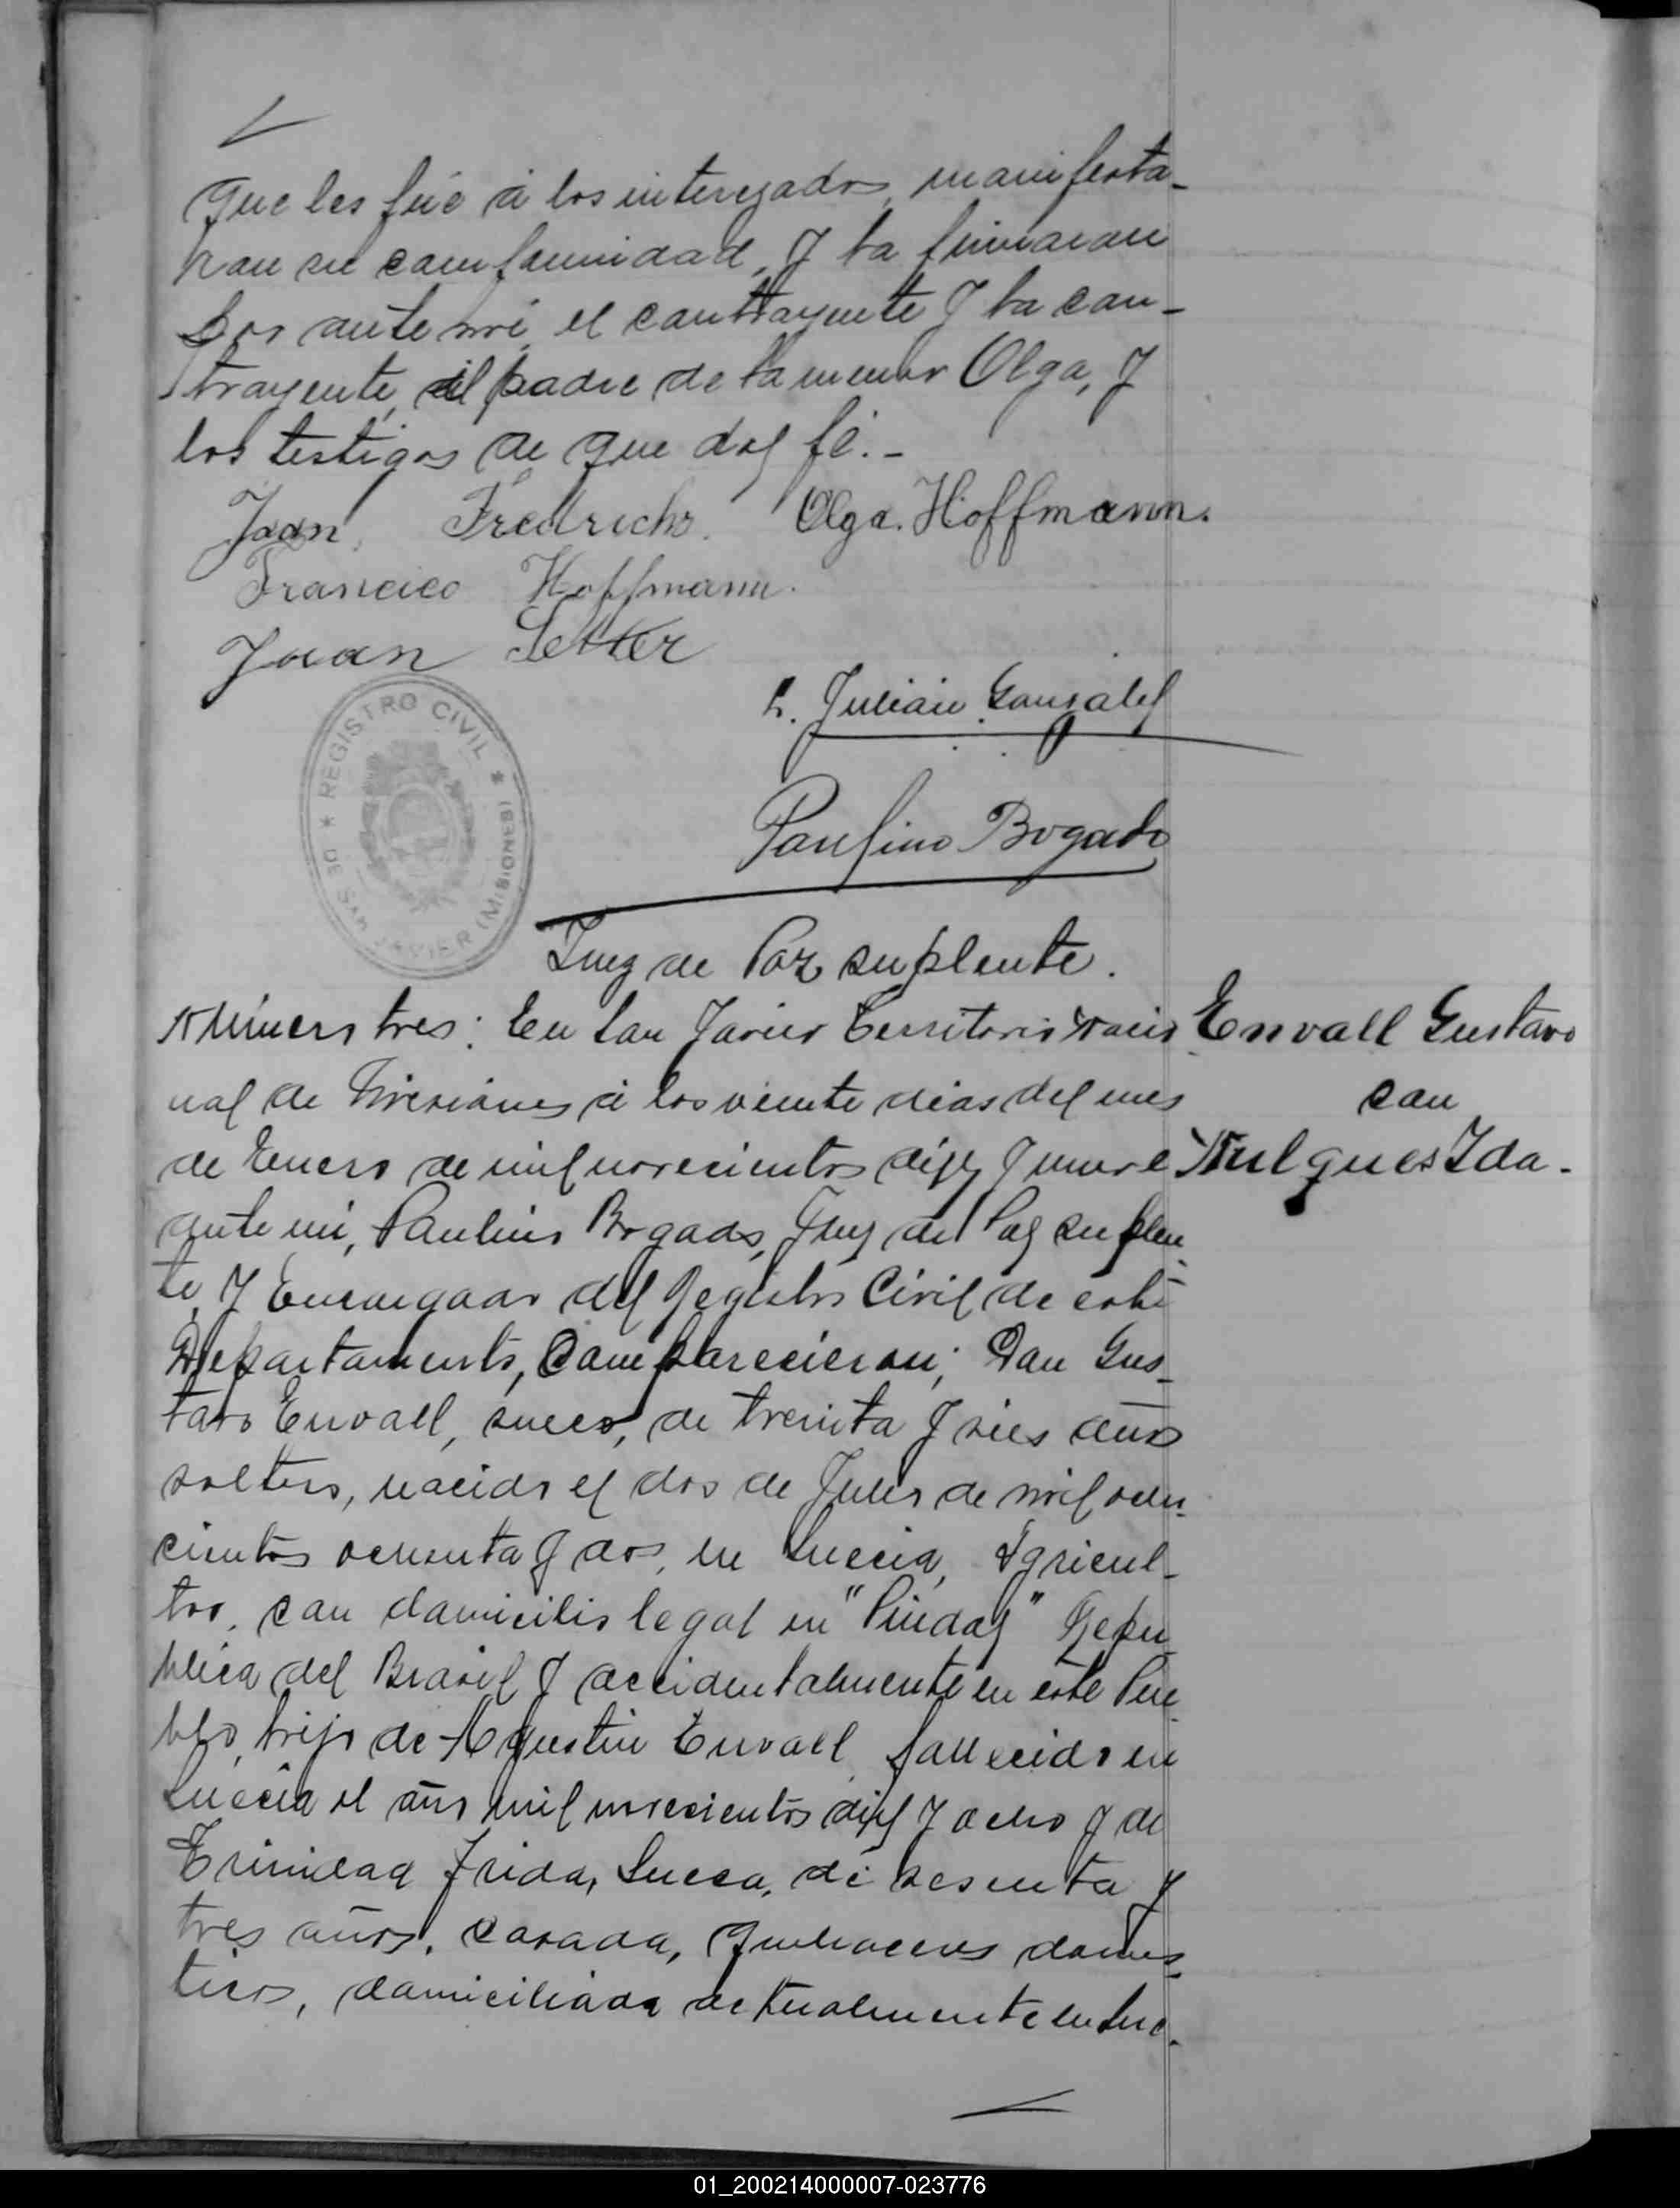 que les fué á los interezados, manifesta-
ron su comformidad, y la firmaron
por ante mi, el contrayente y la con-
trayente, el padre de la menor Olga, y
los testigos de que doy fé.-
Juan Fredrichs. Olga. Hoffmann.
Francico Hoffmann.
Juan Setter
L. Julián Gonzalez
Paulino Bogado
REGISTRO CIVIL * DE SAN JAVIER (MISIONES) *
Juez de Paz suplente.
Número tres: En San Javier Territorio Nacio
nal de Misiones á los veinte dias del mes
de Enero de mil novecientos diez y nueve
ante mi, Paulino Bogado, Juez de Paz suplen
te, y Encargado del Registro Civil de este
Departamento, Comparecieron; Don Gus-
tavo Envall, sueco, de treinta y seis años
soltero, nacido el dos de Julio de mil ocho-
cientos ochenta y dos, en Suecia, Agricul-
tor, con domicilio legal en "Pinday" Repu
blica del Brasil y accidentalmente en este Pue
blo, hijo de Agustin Envall fallecido en
Suecia el año mil novecientos diez y ocho y de
Trinidad Frida, Sueca, de sesenta y
tres años, casada, quehaceres domes-
ticos, domiciliada actualmente en Sue-
Envall Gustavo
con
Nulques Ida.
01_200214000007-023776